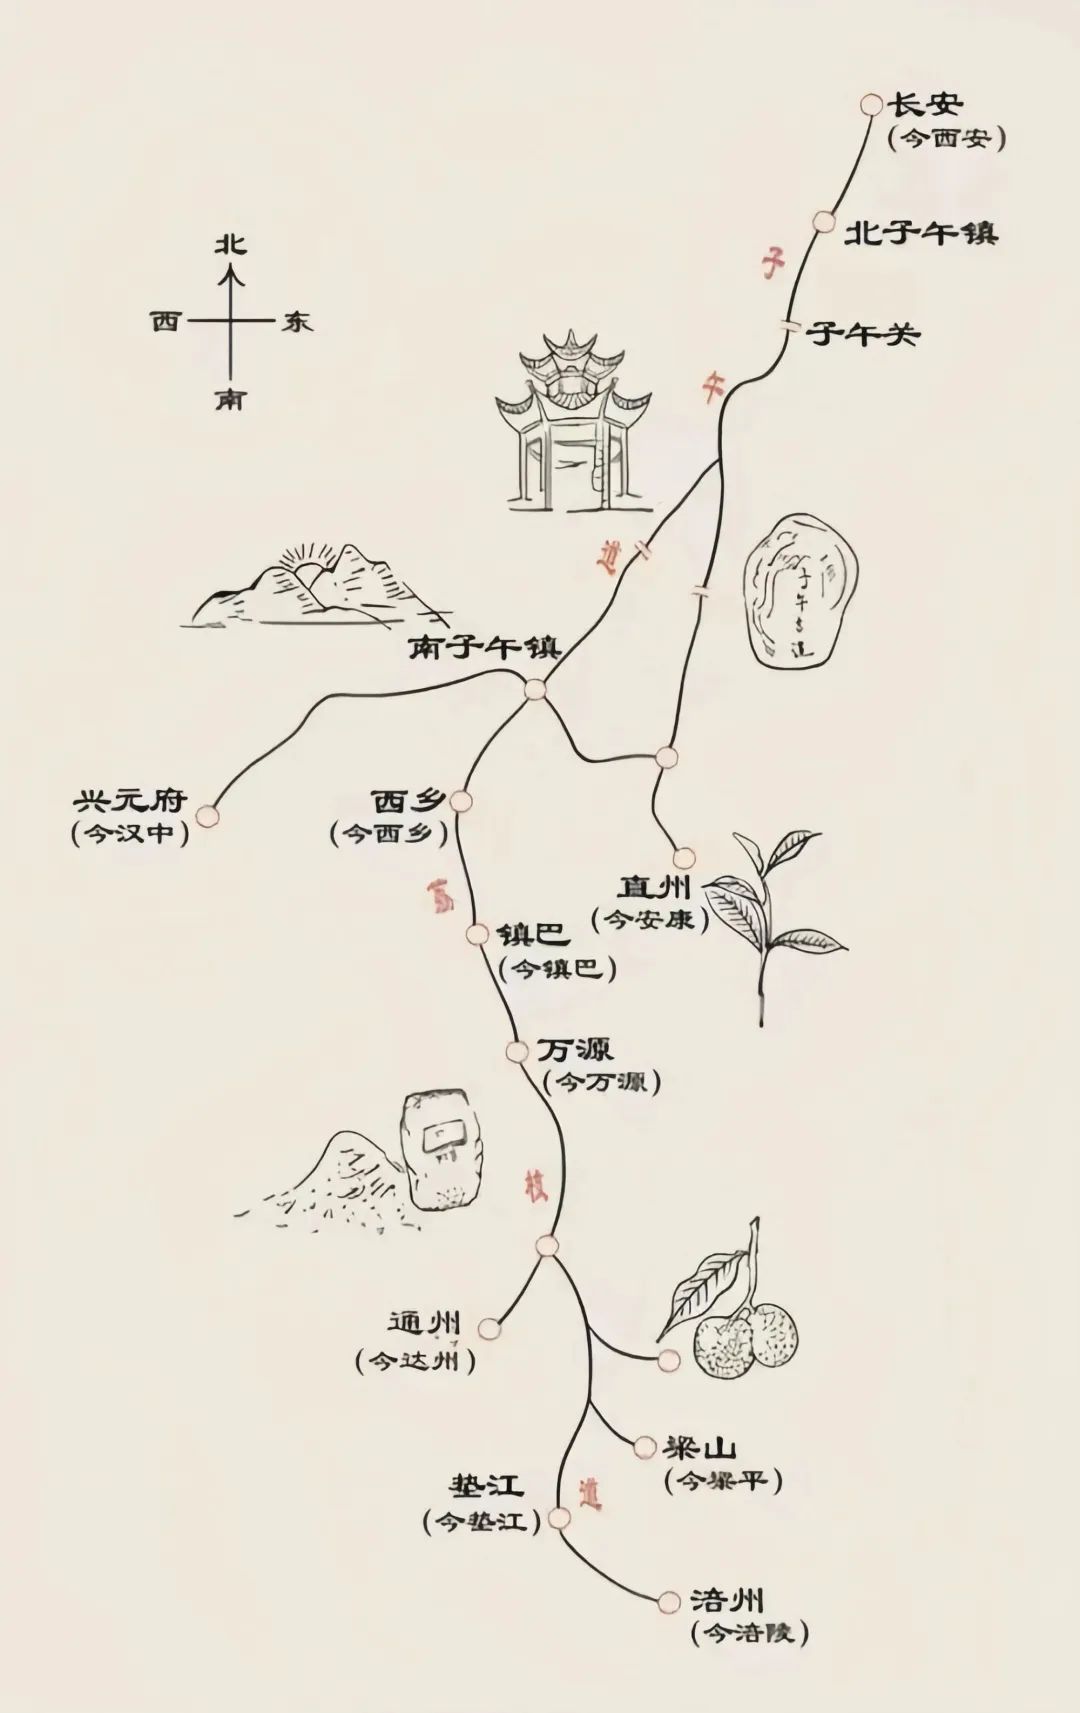 长安
(今西安)
北子午镇
子
子午关
午
道
北
西
东
南
子午古道
南子午镇
兴元府
(今汉中)
西乡
(今西乡)
直州
(今安康)
荔
镇巴
(今镇巴)
万源
(今万源)
枝
通州
(今达州)
梁山
(今梁平)
垫江
(今垫江)
道
涪州
(今涪陵)